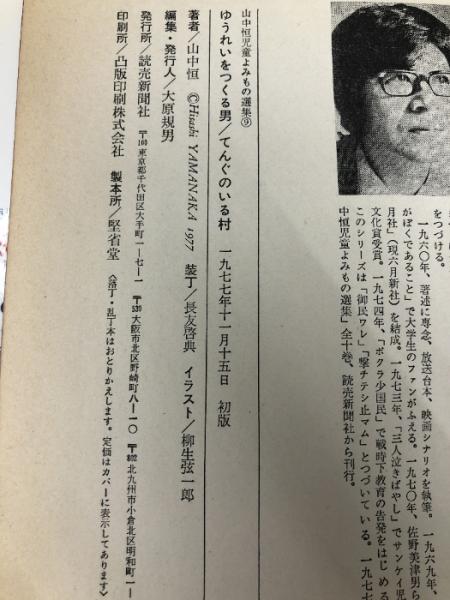 をつづける。
一九六〇年、著述に専念、放送台本、映画シナリオを執筆。一九六九年、
がぼくであること」で大学生のファンがふえる。一九七〇年、佐野美津男ら
月社」(現六月新社)を結成。一九七三年、「三人泣きばやし」でサンケイ児
文化賞受賞。一九七四年、「ボクラ少国民」で戦時下教育の告発をはじめる
このシリーズは「御民ワレ」「撃チテシ止マム」とつづいている。一九七七
中恒児童よみもの選集」全十巻、読売新聞社から刊行。
山中恒児童よみもの選集⑨
ゆうれいをつくる男/てんぐのいる村 一九七七年十一月十五日 初版
著者/山中恒 ©Hisashi YAMANAKA 1977 装丁/長友啓典 イラスト/柳生弦一郎
編集・発行人/大原規男
発行所/読売新聞社 〒100東京都千代田区大手町一-七-一 〒530大阪市北区野崎町八-一〇 〒802北九州市小倉北区明和町一
印刷所/凸版印刷株式会社 製本所/堅省堂 〈落丁・乱丁本はおとりかえします。定価はカバーに表示してあります〉